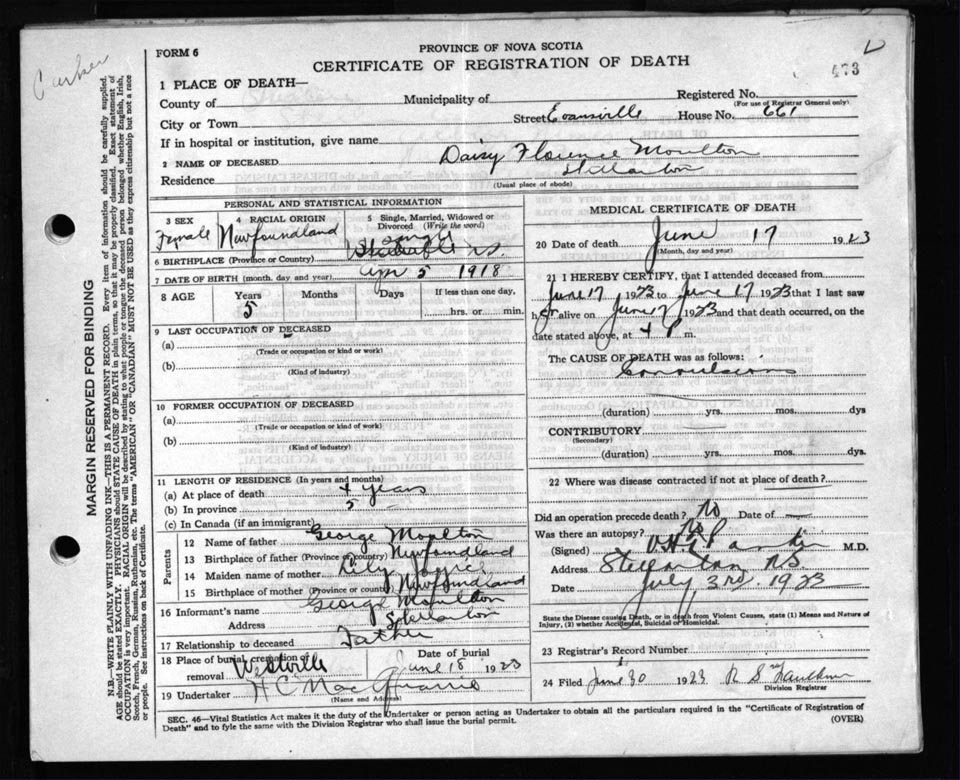 Carker
FORM 6
PROVINCE OF NOVA SCOTIA
CERTIFICATE OF REGISTRATION OF DEATH
473
1 PLACE OF DEATH—
County of
Municipality of
Registered No.
(For use of Registrar General only)
City or Town
Street Evansville House No. 661
If in hospital or institution, give name
2 NAME OF DECEASED Daisy Florence Moulton
Residence Stellarton
(Usual place of abode)
PERSONAL AND STATISTICAL INFORMATION
3 SEX
Female
4 RACIAL ORIGIN
Newfoundland
5 Single, Married, Widowed or Divorced (Write the word)
Single
6 BIRTHPLACE (Province or Country) N.S.
7 DATE OF BIRTH (month, day and year) Apr 5 1918
8 AGE
Years
5
Months
Days
If less than one day,
hrs. or min.
9 LAST OCCUPATION OF DECEASED
(a)
(Trade or occupation or kind or work)
(b)
(Kind of industry)
10 FORMER OCCUPATION OF DECEASED
(a)
(Trade or occupation or kind of work)
(b)
(Kind of industry)
11 LENGTH OF RESIDENCE (In years and months)
(a) At place of death 4 years
(b) In province 5
(c) In Canada (if an immigrant)
Parents
12 Name of father George Moulton
13 Birthplace of father (Province or country) Newfoundland
14 Maiden name of mother Lily
15 Birthplace of mother (Province or country) Newfoundland
16 Informant's name George Moulton
Address Stellarton
17 Relationship to deceased Father
18 Place of burial, cremation or removal Westville
Date of burial
June 18 1923
19 Undertaker H C MacQuarrie
(Name and Address)
MEDICAL CERTIFICATE OF DEATH
20 Date of death June 17 1923
(Month, day and year)
21 I HEREBY CERTIFY, that I attended deceased from
June 17 1923 to June 17 1923 that I last saw
her alive on June 17 1923 and that death occurred, on the
date stated above, at 4 P m.
The CAUSE OF DEATH was as follows:
Convulsions
(duration) yrs. mos. dys
CONTRIBUTORY
(Secondary)
(duration) yrs. mos. dys.
22 Where was disease contracted if not at place of death?
Did an operation precede death? No Date of
Was there an autopsy? No
(Signed) M.D.
Address Stellarton N.S.
Date July 3rd. 1923
State the Disease causing Death, or in death from Violent Causes, state (1) Means and Nature of Injury, (2) whether Accidental, Suicidal or Homicidal.
23 Registrar's Record Number
24 Filed June 30 1923 R S
Division Registrar
SEC. 46—Vital Statistics Act makes it the duty of the Undertaker or person acting as Undertaker to obtain all the particulars required in the "Certificate of Registration of
Death" and to fyle the same with the Division Registrar who shall issue the burial permit.
(OVER)
MARGIN RESERVED FOR BINDING
N.B.—WRITE PLAINLY WITH UNFADING INK—THIS IS A PERMANENT RECORD. Every item of information should be carefully supplied.
AGE should be stated EXACTLY. PHYSICIANS should STATE CAUSE OF DEATH in plain terms, so that it may be properly classified. Exact statement of
OCCUPATION is very important. RACIAL ORIGIN will be described by stating to what people or tongue the deceased person belonged whether English, Irish,
Scotch, French, German, Russian, Ruthenian, etc. The terms "AMERICAN" OR "CANADIAN" MUST NOT BE USED as they express citizenship but not a race
or people. See instructions on back of Certificate.